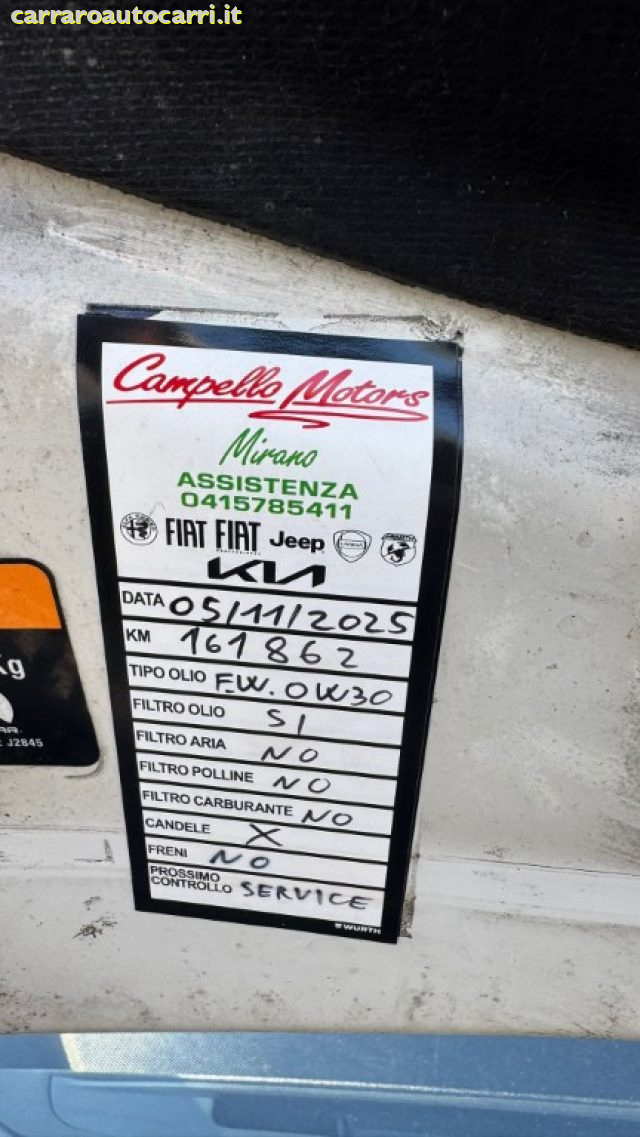 carraroautocarri.it
Campello Motors
Mirano
ASSISTENZA
0415785411
FIAT FIAT Jeep
PROFESSIONAL
KIA
DATA 05/11/2025
KM 161862
TIPO OLIO F.W. 0W30
FILTRO OLIO SI
FILTRO ARIA NO
FILTRO POLLINE NO
FILTRO CARBURANTE NO
CANDELE X
FRENI NO
PROSSIMO
CONTROLLO SERVICE
WÜRTH
Kg
J2845